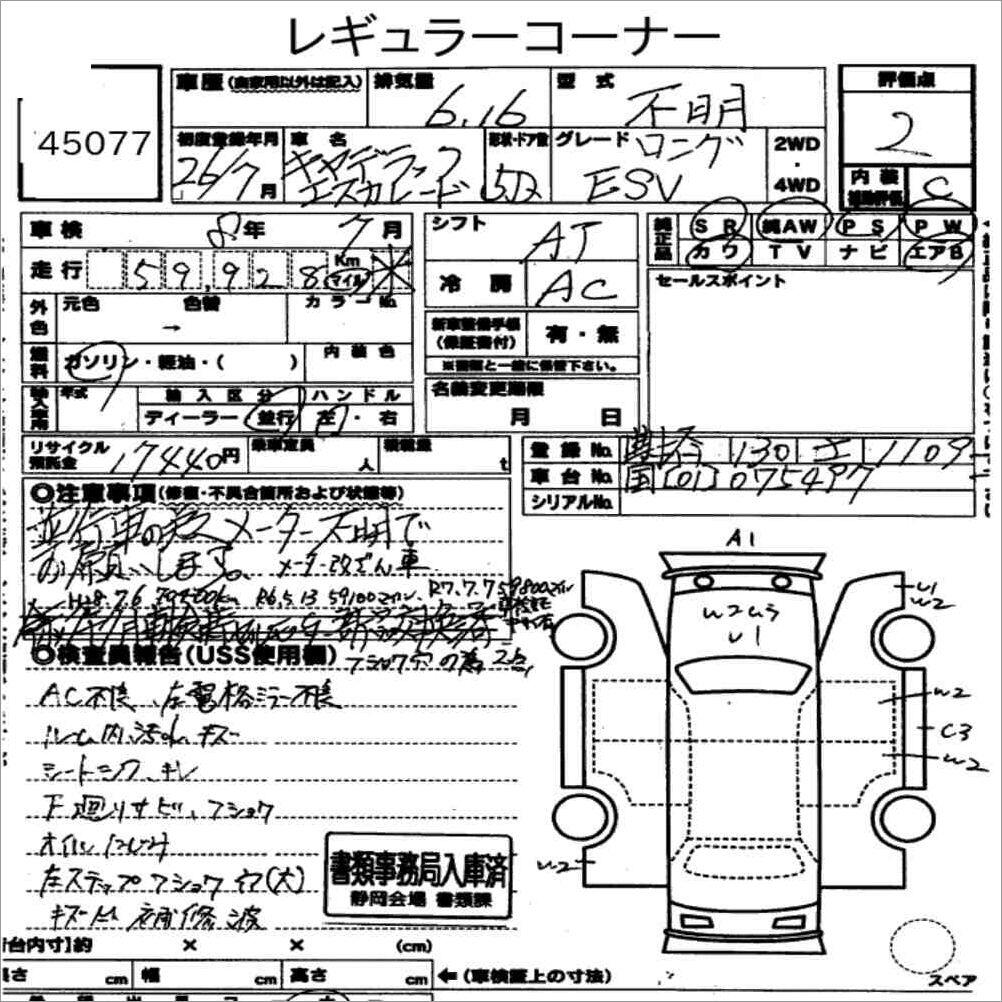 レギュラーコーナー
45077
車歴(自家用以外は記入)
排気量 6.16
型式 不明
評価点 2
初度登録年月 26/7月
車名 キャデラック エスカレード
形状・ドア数 5D
グレード ロング ESV
2WD・4WD
内装補助評価 C
車検 8年7月
走行 59,928 Km マイル
シフト AT
冷房 AC
純正品 SR 純AW PS PW
カワ TV ナビ エアB
外色 元色 → 色替 カラーNo.
セールスポイント
燃料 ガソリン・軽油・( )
内装色
新車整備手帳(保証書付) 有・無
※書類と一緒に保管下さい。
輸入車用 年式 輸入区分 ディーラー・並行
ハンドル 左・右
名義変更期限 月 日
リサイクル預託金 17440円
乗車定員 人
積載量 t
登録No. 130 1109
車台No. 国[01]075497
シリアルNo.
◎注意事項(修復・不具合箇所および状態等)
並行車の為メーター不明で
お願いします。メーター改ざん車
H18.7.6 R6.5.13 59100マイル R7.7.7 59800マイル
◎検査員報告(USS使用欄)
フショク穴の為2点
AC不良、左電格ミラー不良
ルーム内汚れ、キズ
シートシワ、キレ
下廻りサビ、フショク
オイルにじみ
左ステップフショク穴(大)
キズ凹補修波
書類事務局入庫済
静岡会場 書類課
A1
U1
W2
W2
U1
W2
C3
W2
W2
スペア
台内寸]約 × × (cm)
長さ cm 幅 cm 高さ cm ←(車検証上の寸法)